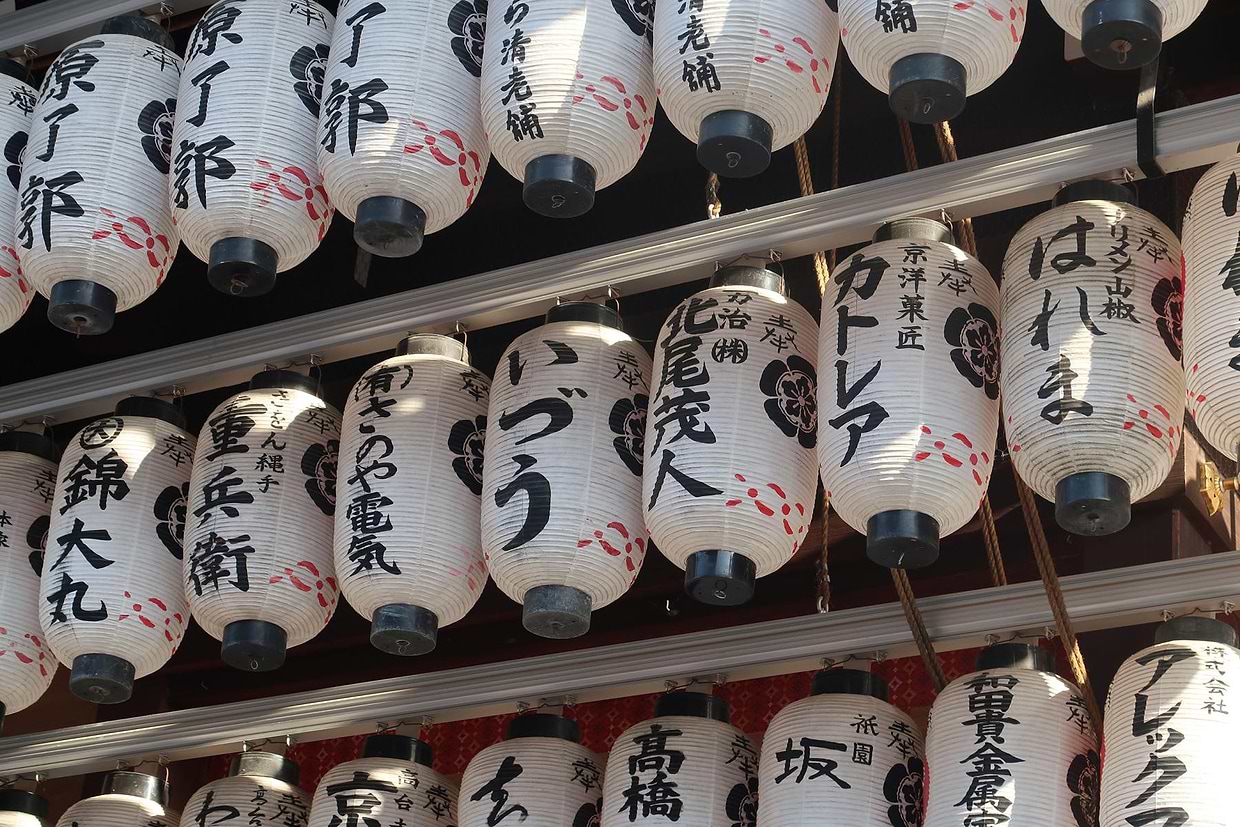 奉
原了郭
奉
原了郭
奉
了郭
ら清老舗
清老舗
舗
奉
錦大丸
奉
さをん縄手
重兵衛
奉
(有)さのや電気
奉
いづう
奉
万治㈱
北尾茂人
奉
京洋菓匠
カトレア
奉
リメン山椒
はれま
奉
奉
高台
京
奉
奉
高橋
奉
祇園
坂
奉
留貴金属
株式会社
アレックス